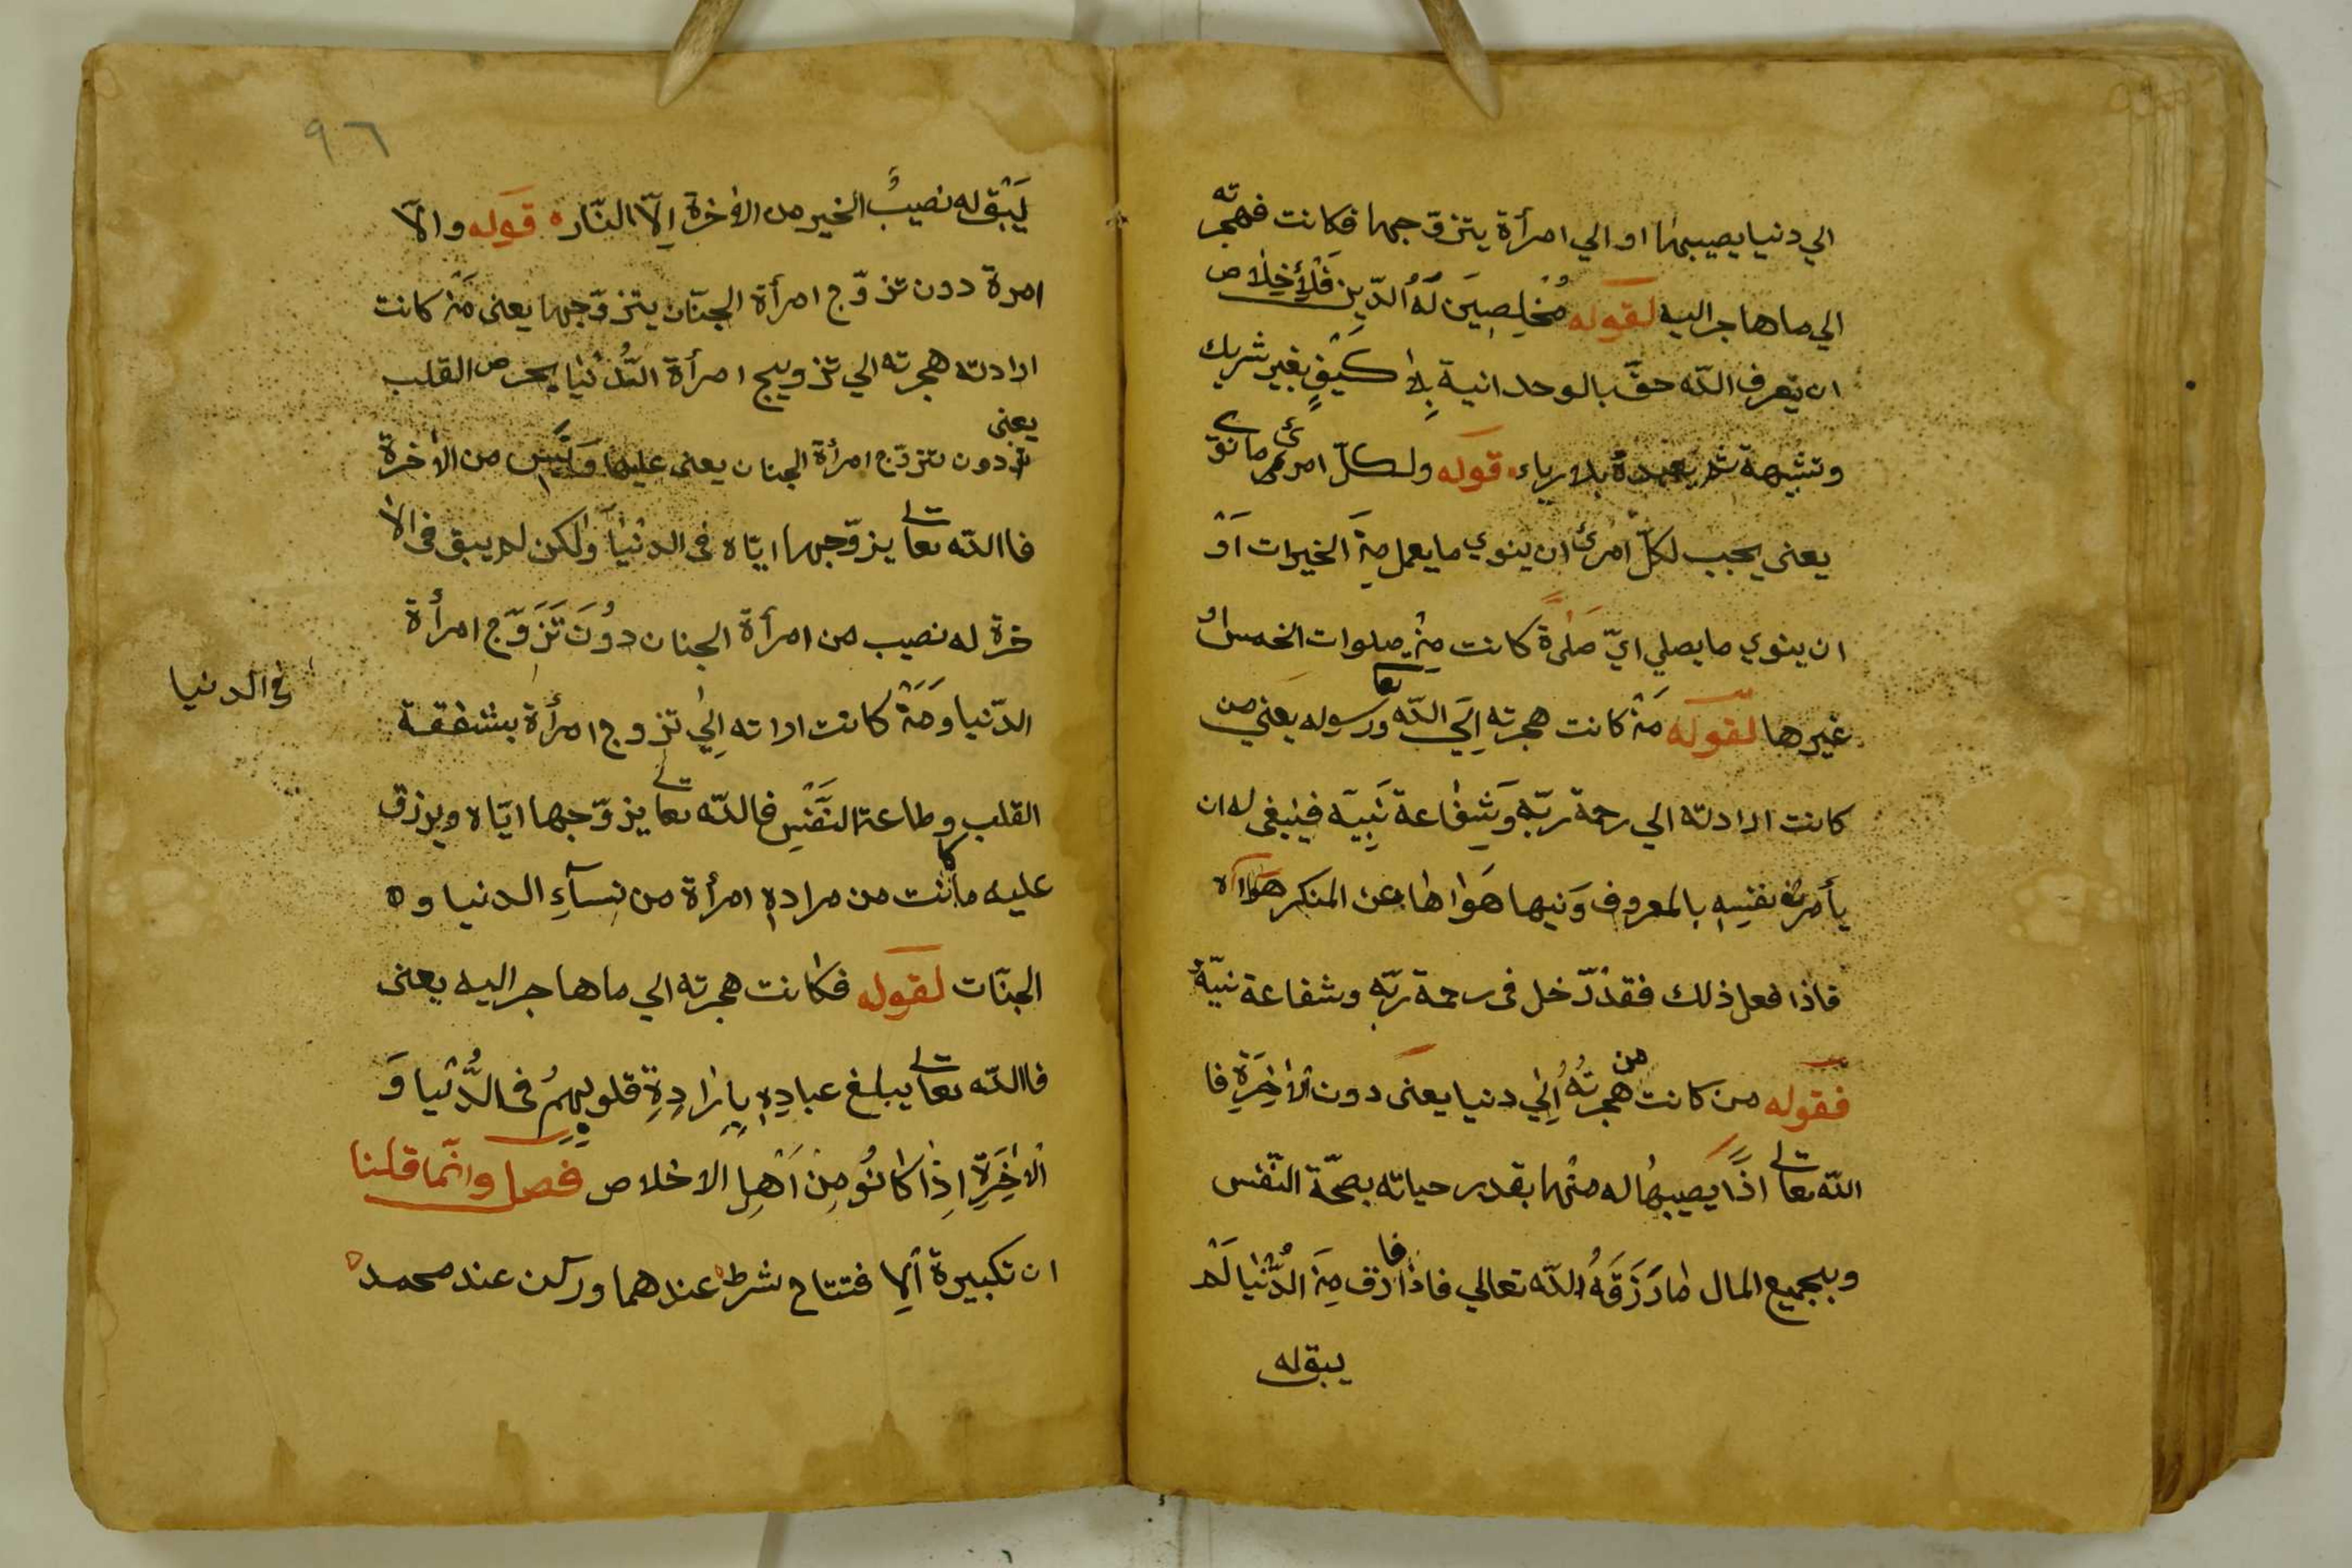 الي دنيا يصيبها او الي امرأة يتزوّجها فكانت فهجرته
الي ما هاجر اليه لقوله مُخْلِصِينَ لَهُ الدّين فَلْأَخِلاص
ان تعرف اللّه حقّ بالوحدانية بِلا كَيْفٍ بغير شريك
وتشبهة ثم يعبده بلا رياء قوله ولكلّ امرئ ما نوى
يعنى يجب لكلّ امرئ ان ينوي ما يعمل مِنَ الخيرات اَوْ
ان ينوي ما يصلي ايّ صَلٰوة كانت مِنْ صلوات الخمس او
غيرها لقوله مَنْ كانت هجرته اِلَي اللّه تعا ورسوله يعني من
كانت ارادته الي رحمة ربّه وَشَفَاعة نَبِيّه فينبغى له ان
يأمر نفسِهِ بالمعروف وَنيها هَوٰاها عن المنكر هواه
فاذا فعل ذلك فقد دّخل فى رحمة ربّهِ وشفاعة نبيّه
فقوله من كانت من هجرتُهُ اِلٰي دنيا يعنى دون الْاٰخِرَةِ فا
اللّه تعالے اذًا يصيبها له منْها بقدر حياته بصحّة النّفس
وبجميع المال مٰا رَزَقَهُ اللّه تعالي فاذا فارق مِنَ الدُّنْيٰا لَمْ
يبق له
٩٦
يَبْق له نصيبُ الخير من الاٰخرة اِلّا النّار قوله والاّ
امرة دون تزوّج امرأة الجنّان يتزوّجها يعنى مَنْ كانت
ارادته هجرته الي تزويج امرأة الدُّنْيٰا بحرص القلب
يعنى
دون تزوّج امرأة الجنان يعنى عليها وَلَيْس من الاٰخرة
فاالله تعالے يزوّجها ايّاه فى الدنْيٰا وَلٰكن لم يبق فى الاٰ
خرة له نصيب من امرأة الجنان دُونَ تَزَوّج امرأة
فى الدنيا
الدّنيا وَمَنْ كانت اراته اِلٰي تزوج امرأة بشفقة
القلب وطاعة النّفْسِ فالله تعالے يزوّجها ايّاه ويرزق
عليه ما كانت من مرادهِ امرأة من نِسآءِ الدنيا و
الجنّات لقوله فكانت هجرته الي ما هاجر اليه يعنى
فاالله تعالے يبلغ عبادِهِ بِاِرٰادِةِ قلوبِهِمُ فى الدُّنْيا وَ
الْاٰخِرَةِ اِذٰا كٰانُو مِنْ اَهْلِ الاخلاص فصل وانّما قلنا
ان تكبيرة اَلِا فتتاح شرط عندهما وركن عند محمد